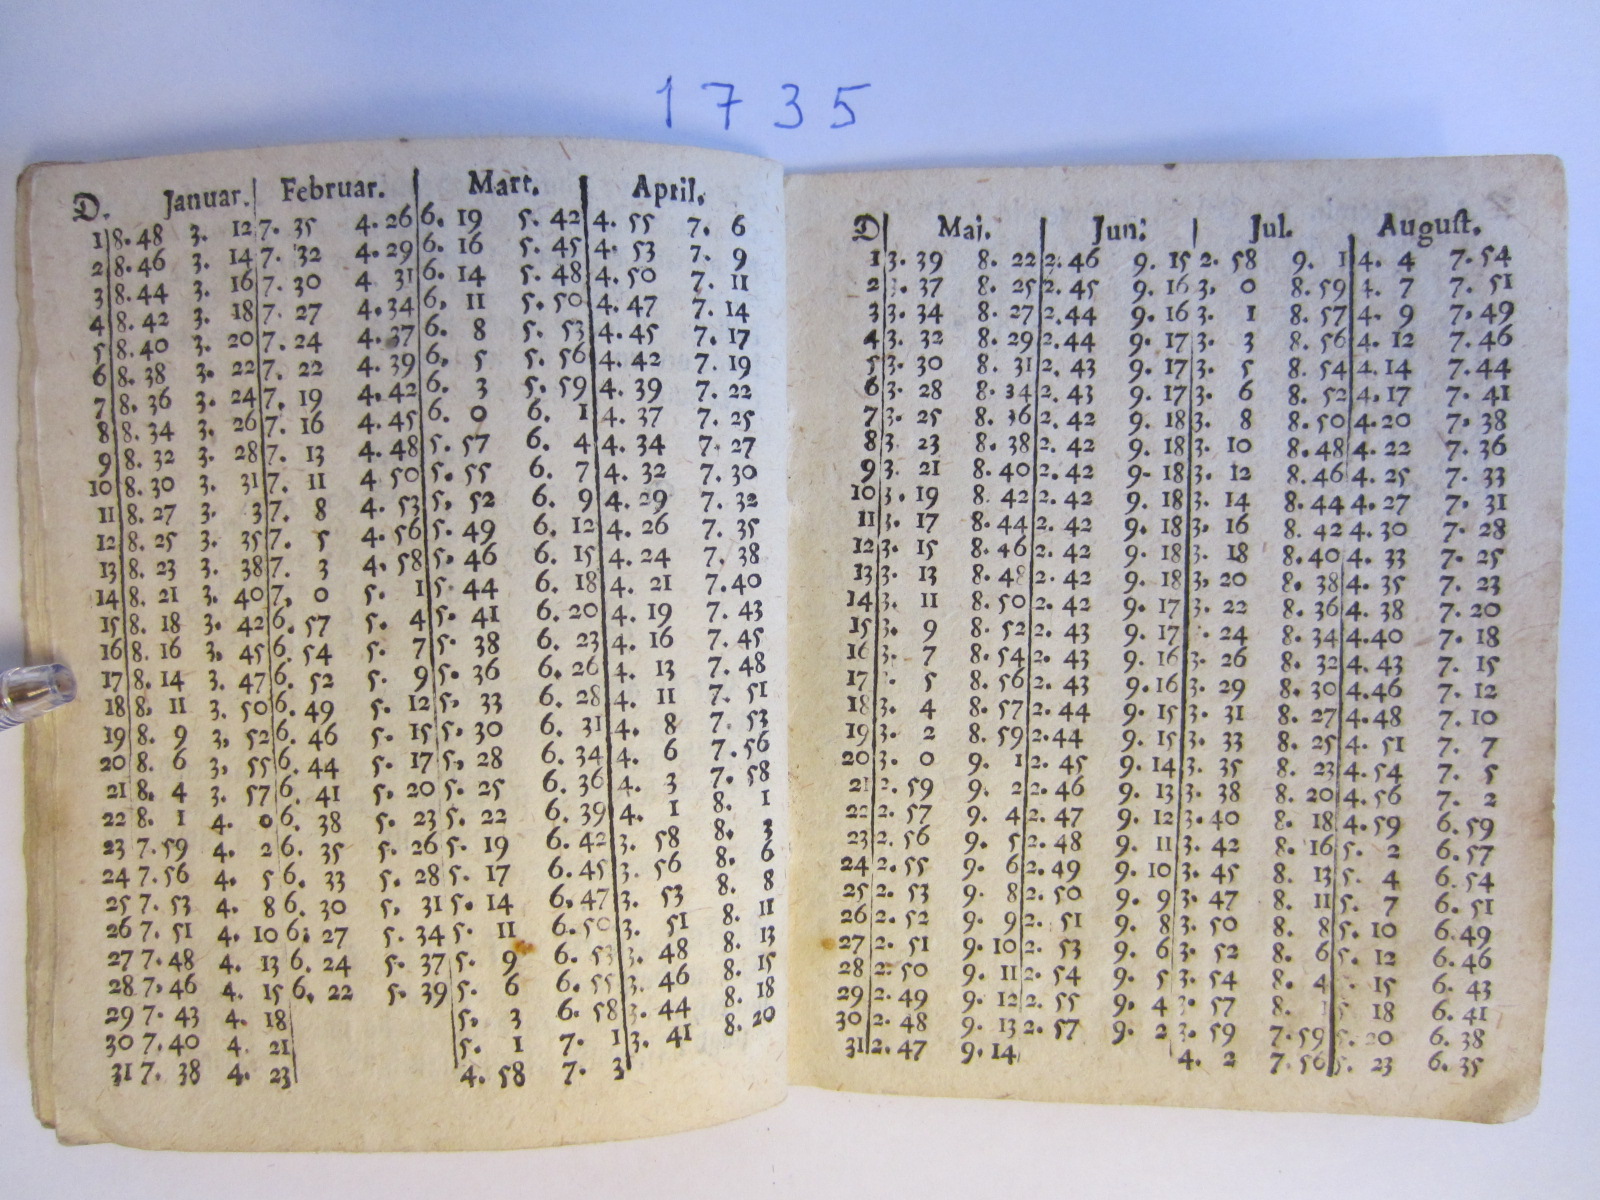 1735
D. Januar. Februar. Mart. April.
1 8. 48 3. 12 7. 35 4. 26 6. 19 5. 42 4. 55 7. 6
2 8. 46 3. 14 7. 32 4. 29 6. 16 5. 45 4. 53 7. 9
3 8. 44 3. 16 7. 30 4 31 6. 14 5. 48 4. 50 7. 11
4 8. 42 3. 18 7. 27 4. 34 6. 11 5. 50 4. 47 7. 14
5 8. 40 3. 20 7. 24 4. 37 6. 8 5. 53 4. 45 7. 17
6 8. 38 3. 22 7. 22 4. 39 6. 5 5. 56 4. 42 7. 19
7 8. 36 3. 24 7. 19 4. 42 6. 3 5. 59 4. 39 7. 22
8 8. 34 3. 26 7. 16 4. 45 6. 0 6. 1 4. 37 7. 25
9 8. 32 3. 28 7. 13 4. 48 5. 57 6. 4 4. 34 7. 27
10 8. 30 3. 31 7. 11 4 50 5. 55 6. 7 4. 32 7. 30
11 8. 27 3. 3 7. 8 4. 53 5. 52 6. 9 4. 29 7. 32
12 8. 25 3. 35 7. 5 4. 56 5. 49 6. 12 4. 26 7. 35
13 8. 23 3. 38 7. 3 4. 58 5. 46 6. 15 4. 24 7. 38
14 8. 21 3. 40 7. 0 5. 1 5. 44 6. 18 4. 21 7. 40
15 8. 18 3. 42 6. 57 5. 4 5. 41 6. 20 4. 19 7. 43
16 8. 16 3. 45 6. 54 5. 7 5. 38 6. 23 4. 16 7. 45
17 8. 14 3. 47 6. 52 5. 9 5. 36 6. 26 4. 13 7. 48
18 8. 11 3. 50 6. 49 5. 12 5. 33 6. 28 4. 11 7. 51
19 8. 9 3. 52 6. 46 5. 15 5. 30 6. 31 4. 8 7. 53
20 8. 6 3. 55 6. 44 5. 17 5. 28 6. 34 4. 6 7. 56
21 8. 4 3. 57 6. 41 5. 20 5. 25 6. 36 4. 3 7. 58
22 8. 1 4. 0 6. 38 5. 23 5. 22 6. 39 4. 1 8. 1
23 7. 59 4. 2 6. 35 5. 26 5. 19 6. 42 3. 58 8. 3
24 7. 56 4. 5 6. 33 5. 28 5. 17 6. 45 3. 56 8. 6
25 7. 53 4. 8 6. 30 5. 31 5. 14 6. 47 3. 53 8. 8
26 7. 51 4. 10 6. 27 5. 34 5. 11 6. 50 3. 51 8. 11
27 7. 48 4. 13 6. 24 5. 37 5. 9 6. 53 3. 48 8. 13
28 7. 46 4. 15 6. 22 5. 39 5. 6 6. 55 3. 46 8. 15
29 7. 43 4. 18 5. 3 6. 58 3. 44 8. 18
30 7. 40 4. 21 5. 1 7. 1 3. 41 8. 20
31 7. 38 4. 23 4. 58 7. 3
D Maj. Jun. Jul. August.
1 3. 39 8. 22 2. 46 9. 15 2. 58 9. 1 4. 4 7. 54
2 3. 37 8. 25 2. 45 9. 16 3. 0 8. 59 4. 7 7. 51
3 3. 34 8. 27 2. 44 9. 16 3. 1 8. 57 4. 9 7. 49
4 3. 32 8. 29 2. 44 9. 17 3. 3 8. 56 4. 12 7. 46
5 3. 30 8. 31 2. 43 9. 17 3. 5 8. 54 4. 14 7. 44
6 3. 28 8. 34 2. 43 9. 17 3. 6 8. 52 4. 17 7. 41
7 3. 25 8. 36 2. 42 9. 18 3. 8 8. 50 4. 20 7. 38
8 3. 23 8. 38 2. 42 9. 18 3. 10 8. 48 4. 22 7. 36
9 3. 21 8. 40 2. 42 9. 18 3. 12 8. 46 4. 25 7. 33
10 3. 19 8. 42 2. 42 9. 18 3. 14 8. 44 4. 27 7. 31
11 3. 17 8. 44 2. 42 9. 18 3. 16 8. 42 4. 30 7. 28
12 3. 15 8. 46 2. 42 9. 18 3. 18 8. 40 4. 33 7. 25
13 3. 13 8. 48 2. 42 9. 18 3. 20 8. 38 4. 35 7. 23
14 3. 11 8. 50 2. 42 9. 17 3. 22 8. 36 4. 38 7. 20
15 3. 9 8. 52 2. 43 9. 17 . 24 8. 34 4. 40 7. 18
16 3. 7 8. 54 2. 43 9. 16 3. 26 8. 32 4. 43 7. 15
17 . 5 8. 56 2. 43 9. 16 3. 29 8. 30 4. 46 7. 12
18 3. 4 8. 57 2. 44 9. 15 3. 31 8. 27 4. 48 7. 10
19 3. 2 8. 59 2. 44 9. 15 3. 33 8. 25 4. 51 7. 7
20 3. 0 9. 1 2. 45 9. 14 3. 35 8. 23 4. 54 7. 5
21 2. 59 9. 2 2. 46 9. 13 3. 38 8. 20 4. 56 7. 2
22 2. 57 9. 4 2. 47 9. 12 3. 40 8. 18 4. 59 6. 59
23 2. 56 9. 5 2. 48 9. 11 3. 42 8. 16 5. 2 6. 57
24 2. 55 9. 6 2. 49 9. 10 3. 45 8. 13 5. 4 6. 54
25 2. 53 9. 8 2. 50 9. 9 3. 47 8. 11 5. 7 6. 51
26 2. 52 9. 9 2. 51 9. 8 3. 50 8. 8 5. 10 6. 49
27 2. 51 9. 10 2. 53 9. 6 3. 52 8. 6 5. 12 6. 46
28 2. 50 9. 11 2. 54 9. 5 3. 54 8. 4 . 15 6. 43
29 2. 49 9. 12 2. 55 9. 4 3. 57 8. 5 18 6. 41
30 2. 48 9. 13 2. 57 9. 2 3. 59 7. 59 5. 20 6. 38
31 2. 47 9. 14 4. 2 7. 56 5. 23 6. 35